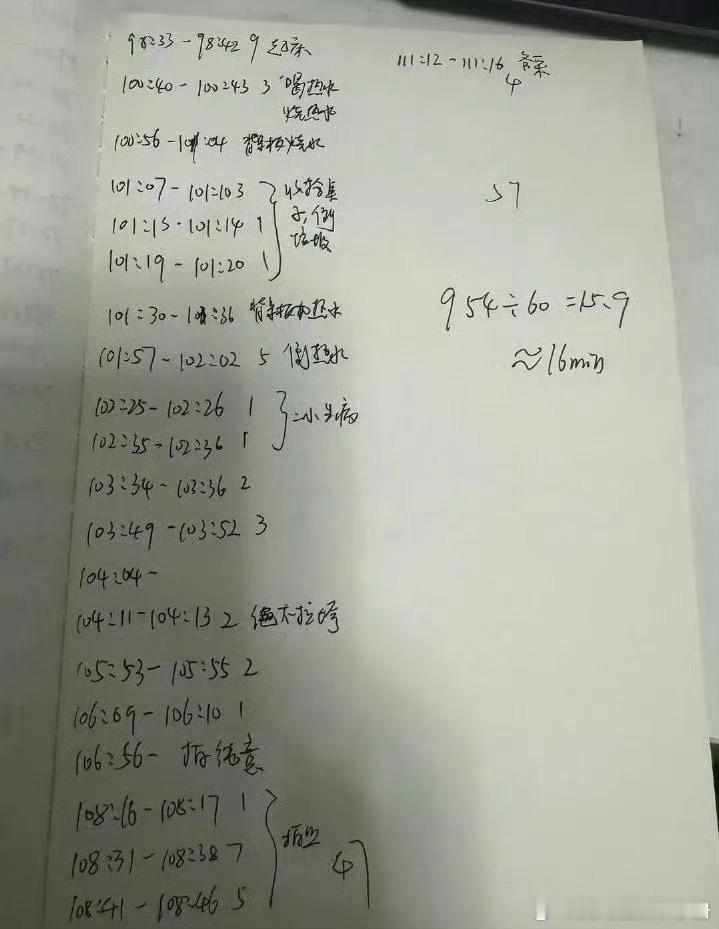 98:33 - 98:42 9 起床
100:40 - 100:43 3 喝热水
烧热水
100:56 - 101:04 烧水
101:07 - 101:103
101:13 - 101:14 1
101:19 - 101:20 1
收拾桌
子,倒
垃圾
101:30 - 101:36 热水
101:57 - 102:02 5 倒热水
102:25 - 102:26 1
102:35 - 102:36 1
103:34 - 103:36 2
103:49 - 103:52 3
104:04 -
104:11 - 104:13 2
105:53 - 105:55 2
106:09 - 106:10 1
106:56 -
108:16 - 108:17 1
108:31 - 108:38 7
108:41 - 108:46 5
47
111:12 - 111:16 备菜
4
57
954÷60 =15.9
≈16min